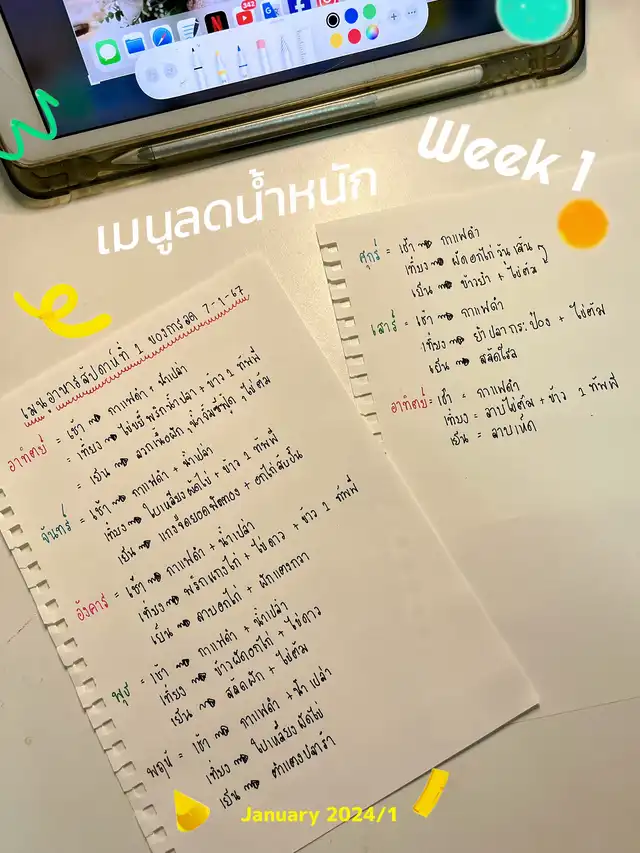 342
Week 1
เมนูลดน้ำหนัก
เมนูอาหารสัปดาห์ที่ 1 ของการลด 7-1-67
อาทิตย์ = เช้า → กาแฟดำ + น้ำเปล่า
= เที่ยง → ไข่ขยี้พริกน้ำปลา + ข้าว 1 ทัพพี
= เย็น → ลวกเนื้อผัก, น้ำจิ้มซีฟู้ด, ไข่ต้ม
จันทร์ = เช้า → กาแฟดำ + น้ำเปล่า
เที่ยง → ใบเหลียงผัดไข่ + ข้าว 1 ทัพพี
เย็น → แกงจืดยอดฟักทอง + อกไก่สับชิ้น
อังคาร = เช้า → กาแฟดำ + น้ำเปล่า
เที่ยง → พริกแกงไก่ + ไข่ดาว + ข้าว 1 ทัพพี
เย็น → ลาบอกไก่ + ผักแตงกวา
พุธ = เช้า → กาแฟดำ + น้ำเปล่า
เที่ยง → ข้าวผัดอกไก่ + ไข่ดาว
เย็น → สลัดผัก + ไข่ต้ม
พฤหัส = เช้า → กาแฟดำ + น้ำเปล่า
เที่ยง → ใบเหลียงผัดไข่
เย็น → ตำแตงปลาร้า
ศุกร์ = เช้า → กาแฟดำ
เที่ยง → ผัดอกไก่วุ้นเส้น
เย็น → ข้าวยำ + ไข่ต้ม
เสาร์ = เช้า → กาแฟดำ
เที่ยง → ยำปลากระป๋อง + ไข่ต้ม
เย็น → สลัดโรล
อาทิตย์ = เช้า = กาแฟดำ
เที่ยง = ลาบไข่ต้ม + ข้าว 1 ทัพพี
เย็น = ลาบเห็ด
January 2024/1